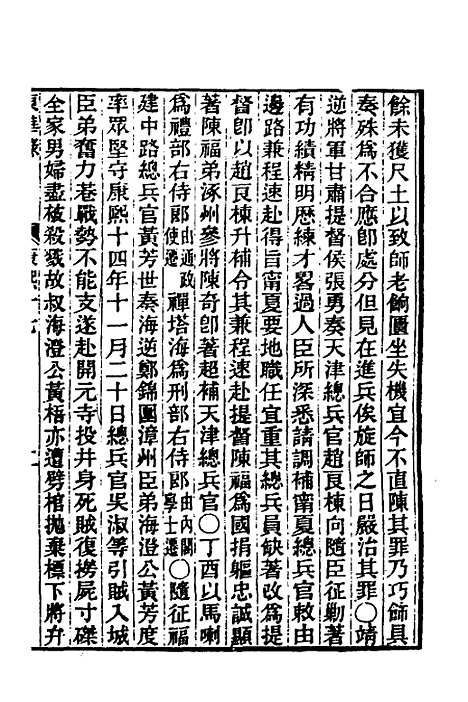 餘未獲尺土以致師老餉匱坐失機宜今不直陳其罪乃巧飾具
奏殊爲不合應卽處分但見在進兵俟旋師之日嚴治其罪〇靖
逆將軍甘肅提督侯張勇奏天津總兵官趙良棟向隨臣征勦著
有功績精明歷練才畧過人臣所深悉請調補甯夏總兵官敕由
邊路兼程速赴得旨甯夏要地職任宜重其總兵員缺著改爲提
督卽以趙良棟升補令其兼程速赴提督陳福爲國捐軀忠誠顯
著陳福弟涿州參將陳奇卽著超補天津總兵官〇丁酉以馬喇
爲禮部右侍郎由通政使遷禪塔海爲刑部右侍郎由內閣學士遷〇隨征福
建中路總兵官黃芳世奏海逆鄭錦圍漳州臣弟海澄公黃芳度
率眾堅守康熙十四年十一月二十日總兵官吳淑等引賊入城
臣弟奮力巷戰勢不能支遂赴開元寺投井身死賊復撈屍寸磔
全家男婦盡被殺戮故叔海澄公黃梧亦遭劈棺拋棄標下將弁